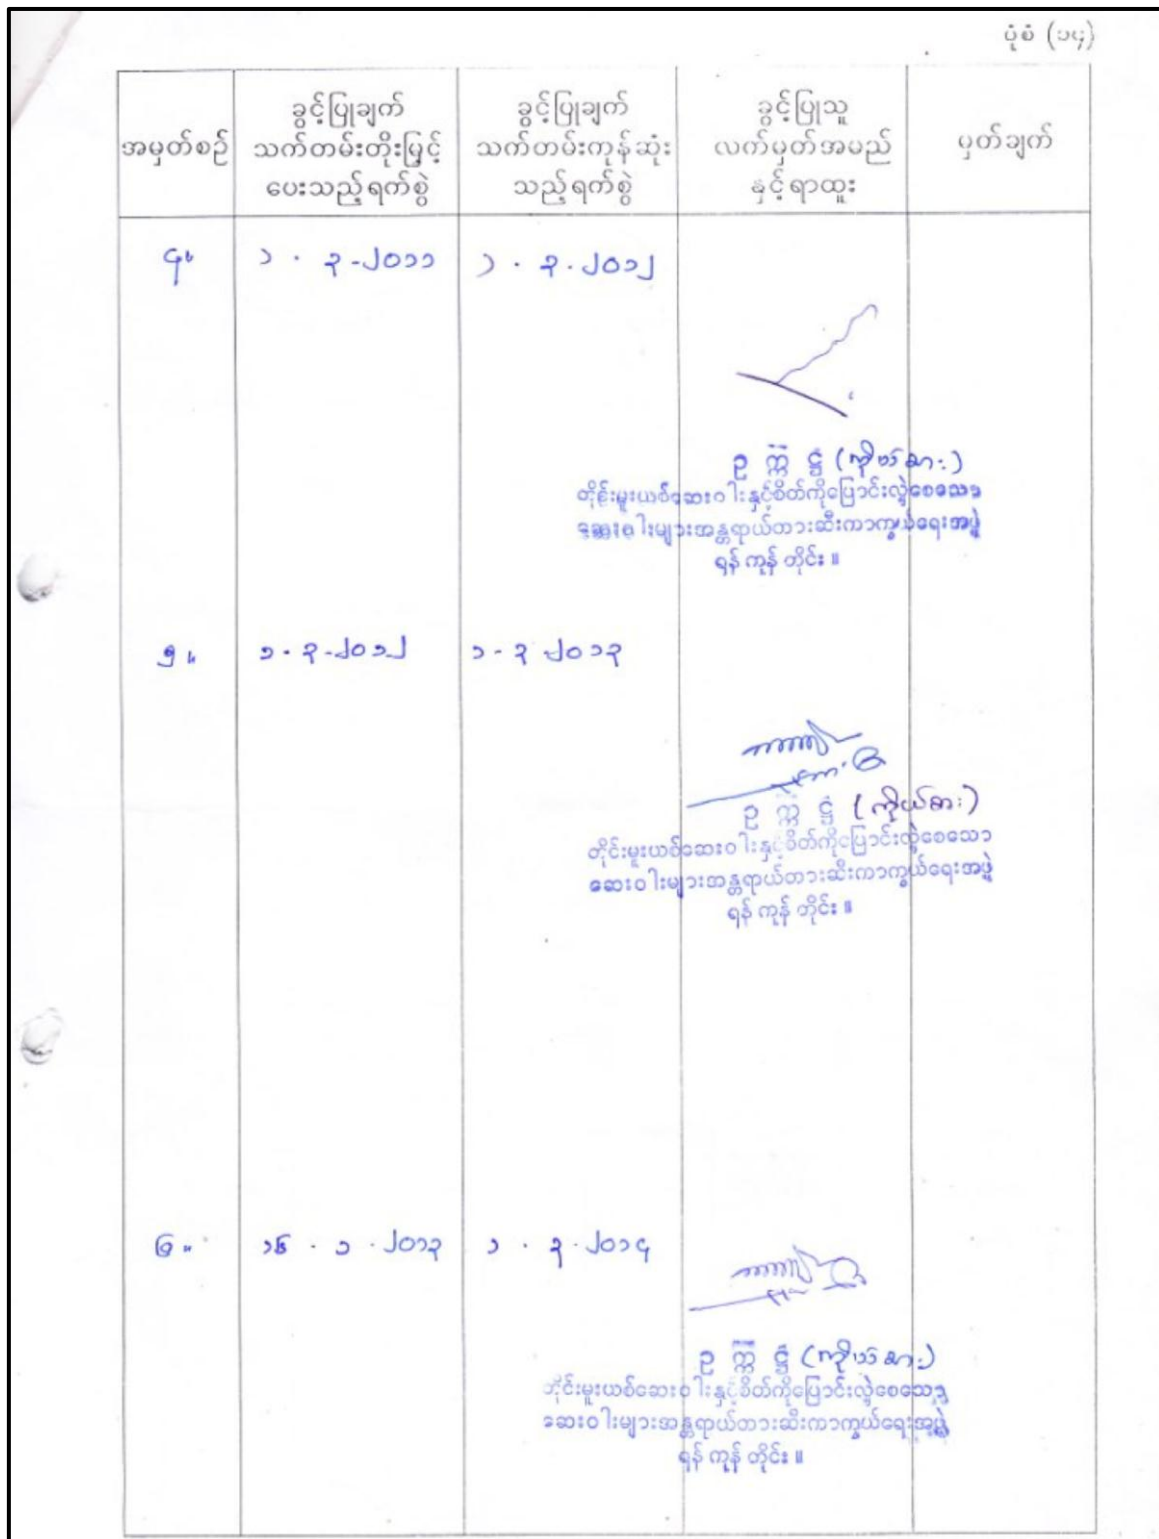 ပုံစံ (၁၄)
အမှတ်စဉ်
ခွင့်ပြုချက်
သက်တမ်းတိုးမြှင့်
ပေးသည့်ရက်စွဲ
ခွင့်ပြုချက်
သက်တမ်းကုန်ဆုံး
သည့်ရက်စွဲ
ခွင့်ပြုသူ
လက်မှတ်အမည်
နှင့်ရာထူး
မှတ်ချက်
၄။ ၁ . ၃ - ၂၀၁၁ ၁ . ၃ . ၂၀၁၂
ဥက္ကဋ္ဌ (ကိုယ်စား)
တိုင်းမူးယစ်ဆေးဝါးနှင့်စိတ်ကိုပြောင်းလွဲစေသော
ဆေးဝါးများအန္တရာယ်တားဆီးကာကွယ်ရေးအဖွဲ့
ရန်ကုန်တိုင်း။
၅။ ၁ . ၃ - ၂၀၁၂ ၁ - ၃ ၂၀၁၃
ဥက္ကဋ္ဌ (ကိုယ်စား)
တိုင်းမူးယစ်ဆေးဝါးနှင့်စိတ်ကိုပြောင်းလွဲစေသော
ဆေးဝါးများအန္တရာယ်တားဆီးကာကွယ်ရေးအဖွဲ့
ရန်ကုန်တိုင်း။
၆။ ၁၆ . ၁ . ၂၀၁၃ ၁ . ၃ . ၂၀၁၄
ဥက္ကဋ္ဌ (ကိုယ်စား)
တိုင်းမူးယစ်ဆေးဝါးနှင့်စိတ်ကိုပြောင်းလွဲစေသော
ဆေးဝါးများအန္တရာယ်တားဆီးကာကွယ်ရေးအဖွဲ့
ရန်ကုန်တိုင်း။